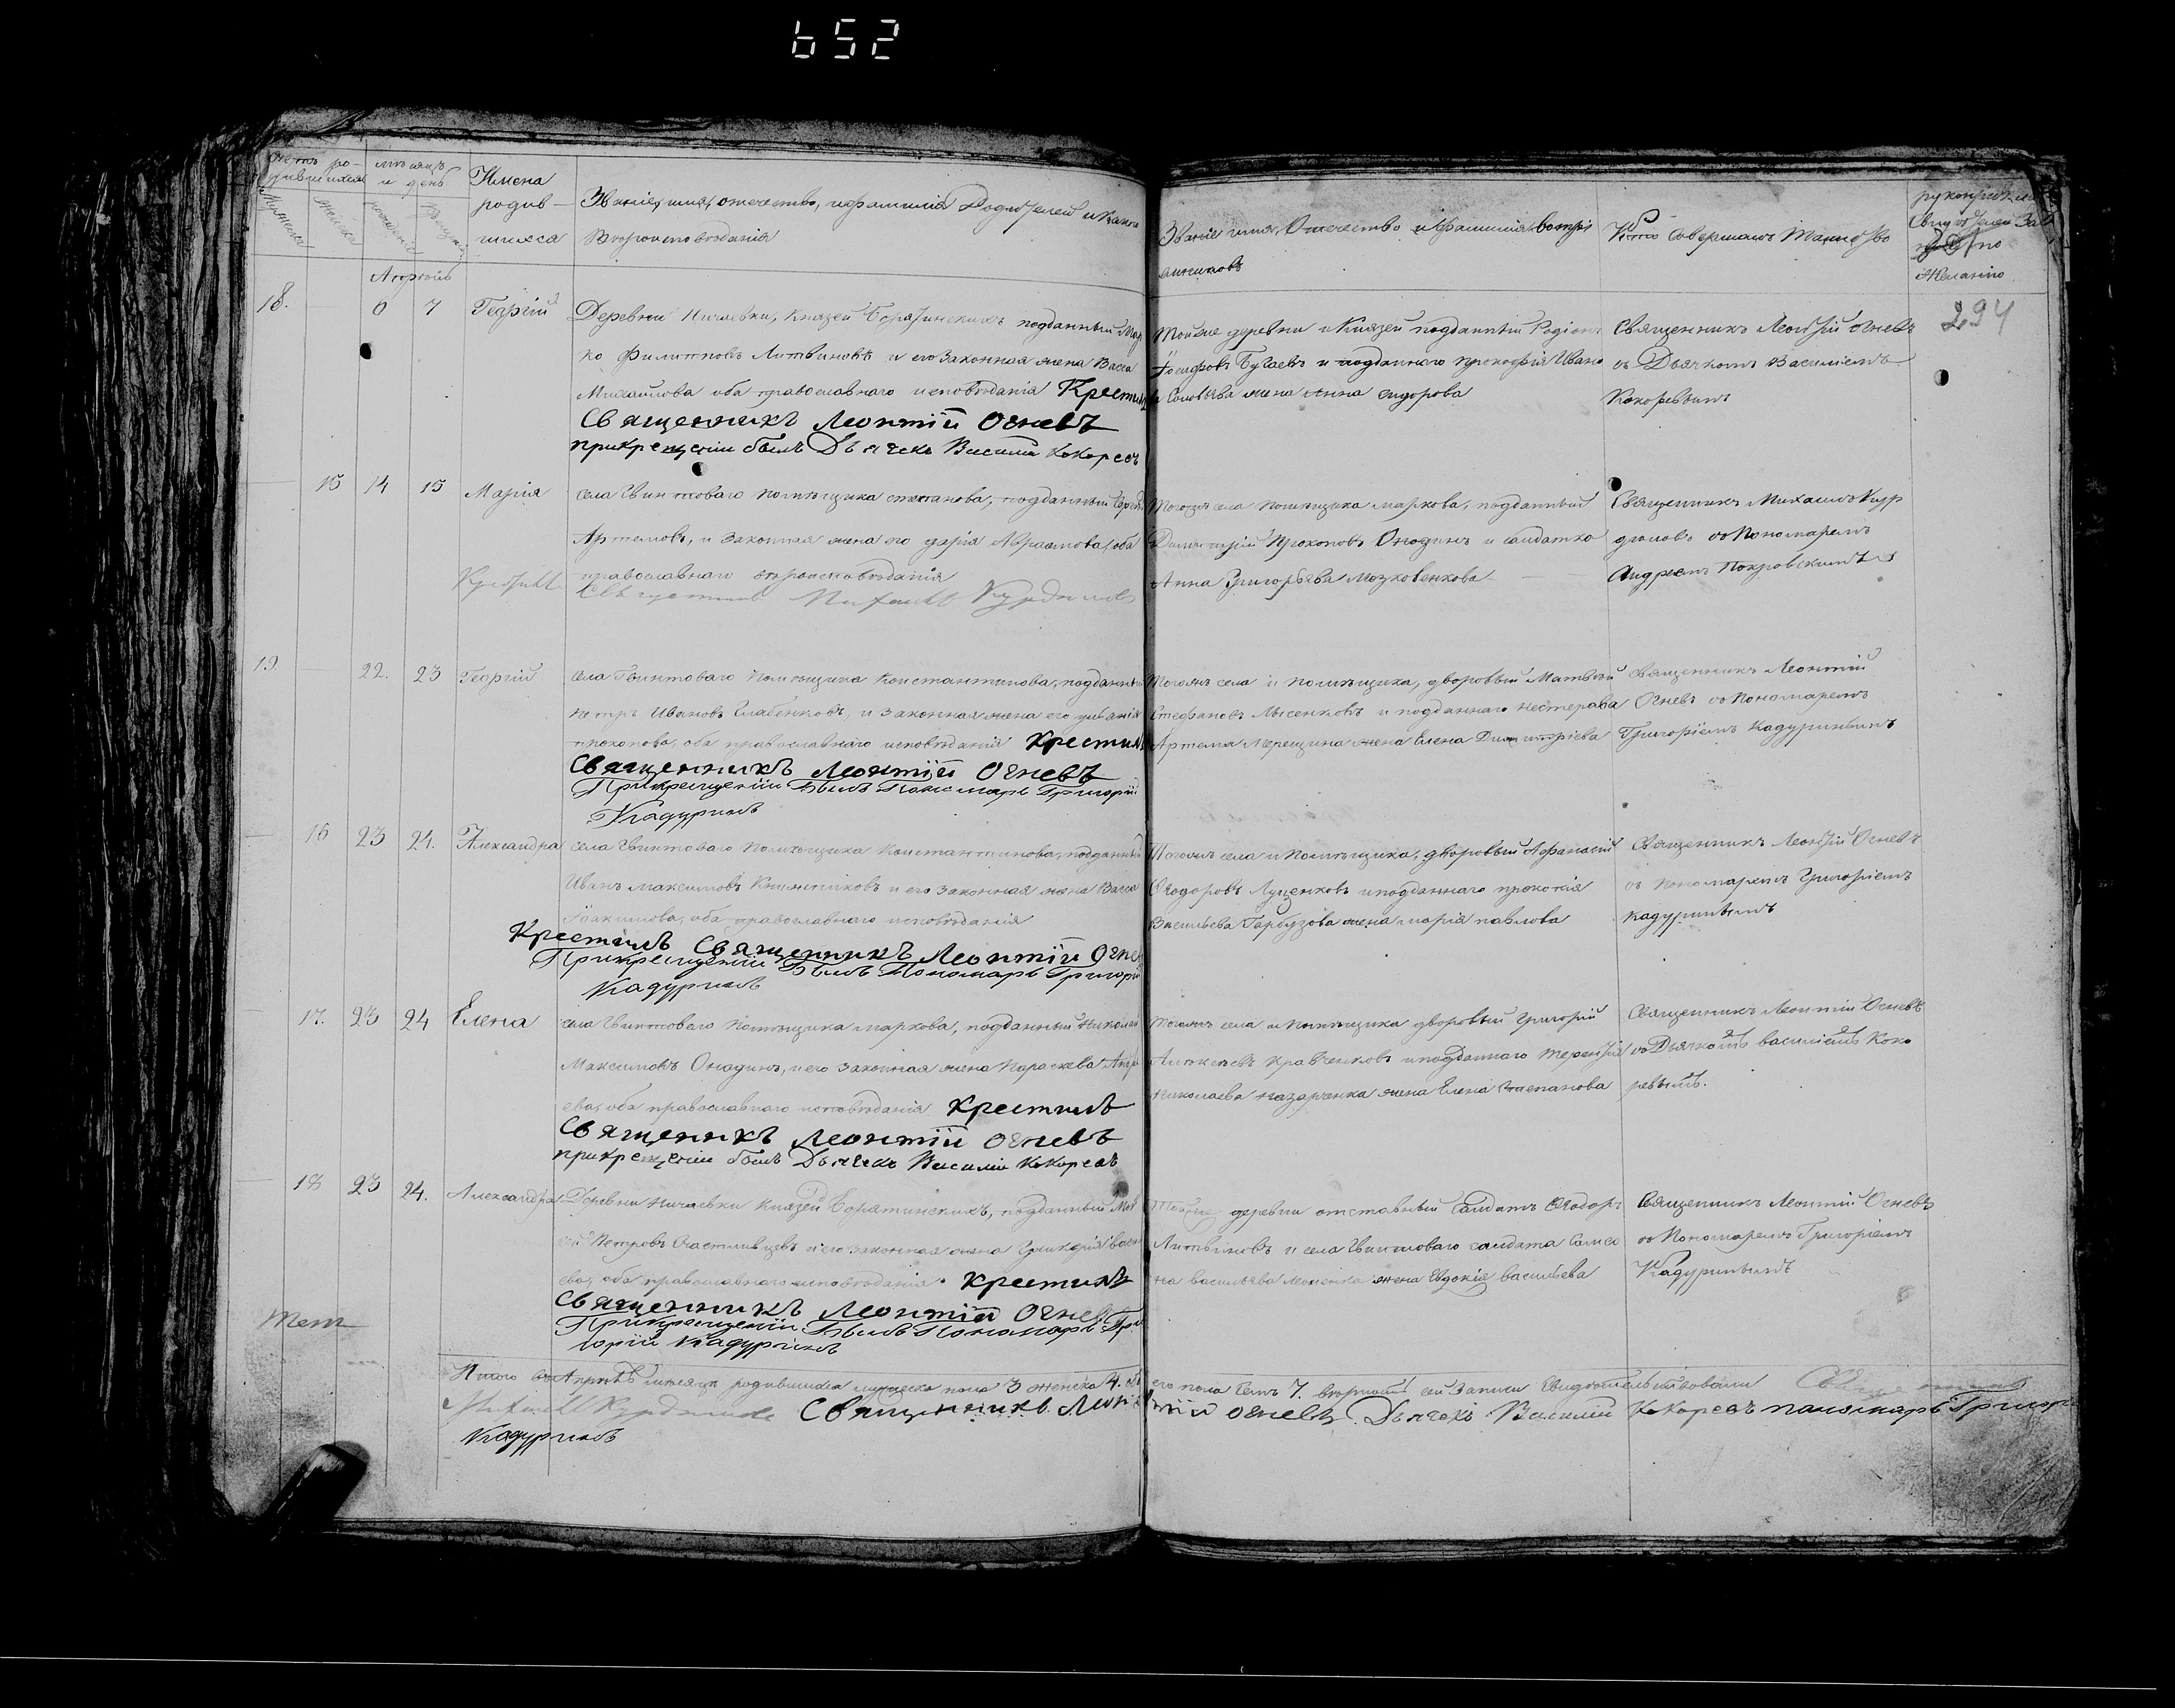 652
Имена
родив-
шихся
Званіе, имя, отечество, и фамилія Родителей и какого
Вѣроисповѣданія
Званіе имя, Отечество и фамилія воспрі
емниковъ
Кто Совершалъ Таинство
по
Желанію
294
Апрѣль
18. 6 7 Георгій
Деревни Ничаевки, Князей Борятинскихъ подданный Мар
ко Филиповъ Литвиновъ и его Законная жена Васса
Михайлова оба православнаго исповѣданія Крестилъ
Священникъ Леонтій Огневъ
прикрещеніи былъ Дьячекъ Василій Кокоревъ
Тойже деревни и Князей подданный Родіонъ
Іосифовъ Бугаевъ и подданнаго прокофія Ивано
ва Соловьева жена анна сидорова
Священникъ Леонтій Огневъ
съ Дьячкомъ Василіемъ
Кокоревымъ
15 14 15 Марія
села Гвинтоваго помѣщика степанова, подданный Сергѣй
Артемовъ, и Законная жена его дарія Авраамова, оба
православнаго вѣроисповѣданія
Священникъ Михаилъ Курдюмовъ
Тогожъ села помѣщика маркова, подданный
Димитрій Прокоповъ Онадинъ и солдатка
Анна Григорьева Мозковенкова
Священникъ Михаилъ Кур
дюмовъ съ Пономаремъ
Андреемъ Покровскимъ
19. 22. 23 Георгій
села Гвинтоваго помѣщика Константинова, подданный
петръ Ивановъ Слабенковъ, и Законная жена его
прокопова, оба православнаго исповѣданія Крестилъ
Священникъ Леонтій Огневъ
Прикрещеніи Былъ Пономарь Григорій
Кадуринъ
Тогожъ села и помѣщика, дворовый Матвѣй
Стефановъ Лысенковъ и подданнаго нестерава
Артема Мерещина жена Елена Димитріева
Священникъ Леонтій
Огневъ съ Пономаремъ
Григоріемъ Кадуринымъ
16 23 24. Александра
села Гвинтоваго Помѣщика Константинова, подданный
Иванъ Максимовъ и его Законная жена Васса
Іоакимова, оба православнаго исповѣданія
Крестилъ Священникъ Леонтій Огнев
Прикрещеніи Былъ Пономарь Григорій
Кадуринъ
Тогожъ села и Помѣщика, дворовый Афанасій
Ѳеодоровъ Луценковъ и подданнаго прокопія
Васильева Гарбузова жена марія павлова
Священникъ Леонтій Огневъ
съ пономаремъ Григоріемъ
кадуринымъ
17. 23 24 Елена
села Гвинтоваго Помѣщика маркова, подданный Николай
Максимовъ Онадинъ, и его Законная жена Параскева Андре
ева, оба православнаго исповѣданія Крестилъ
Священникъ Леонтій Огневъ
прикрещеніи былъ Дьячекъ Василій Кокоревъ
Тогожъ села и помѣщика дворовый Григорій
Алексѣевъ Кравченковъ и подданнаго терентія
Николаева назаренка жена Елена Степанова
Священникъ Леонтій Огневъ
съ Дьячкомъ василіемъ Коко
ревымъ.
18 23 24. Александра
Деревни Ничаевки Князей Борятинскихъ, подданный Мат
ѳей Петровъ Счастливцевъ и его законная жена Гликерія васи
ева, оба православнаго исповѣданія Крестилъ
Священникъ Леонтій Огневъ
Прикрещеніи Былъ Пономарь Гри
горій Кадуринъ
Тойже деревни отставный солдатъ Ѳеодоръ
Литвиновъ и села Гвинтоваго солдата Самсо
на васильева жена Евдокія васильева
Священникъ Леонтій Огневъ
съ Пономаремъ Григоріемъ
Кадуринымъ
Итого въ Апрѣлѣ мѣсяцѣ родившихся мужеска пола 3 женска 4. обо
его пола семъ 7. вѣрности сей Записи свидѣтельствовали Священникъ
Михаилъ Курдюмовъ Священникъ Леонтій Огневъ. Дьячекъ Василій Кокоревъ пономарь Григор
Кадуринъ